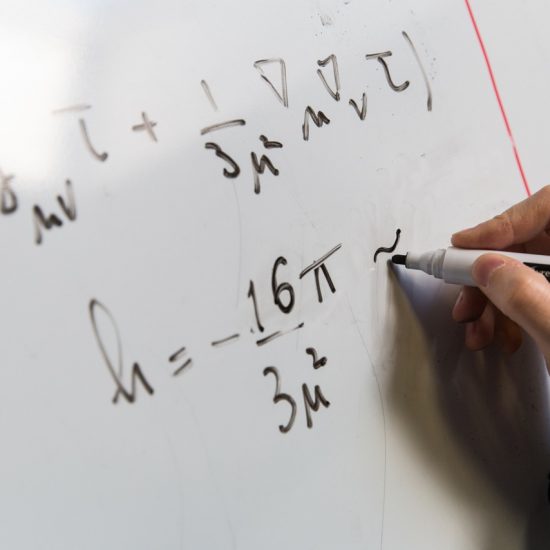 μν τ + 1/3μ² ∇μ ∇ν τ)
h = -16π/3μ² ~